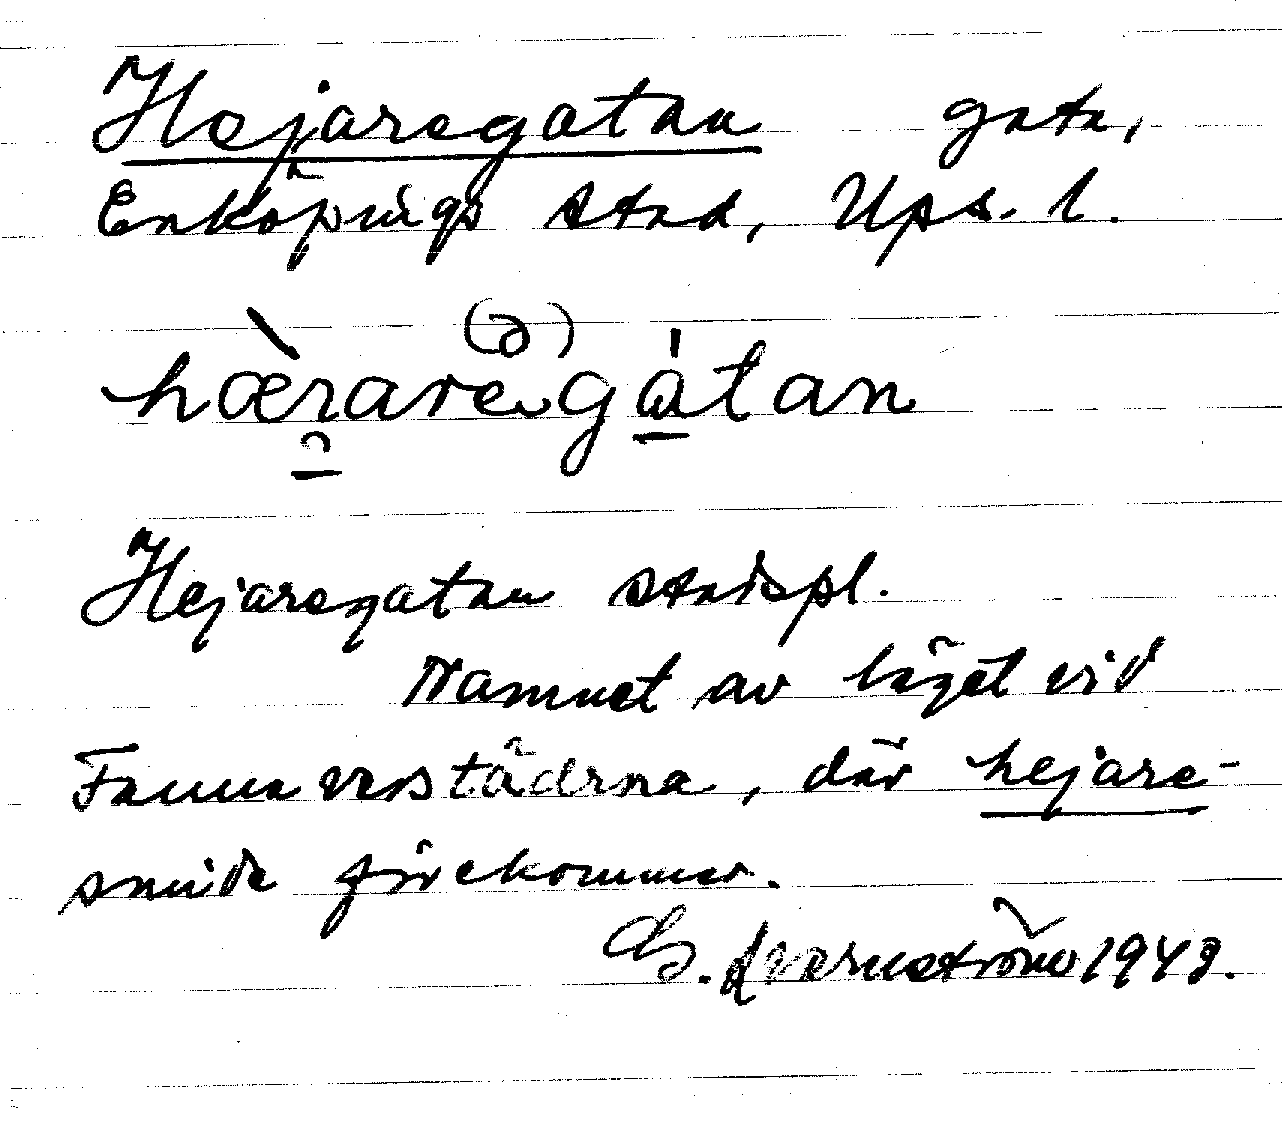 Hejaregatan gata,
Enköpings stad, Ups. l.
hæraregatan
Hejaregatan stadspl.
Namnet av läget vid
Fannaverstäderna, där hejare-
smide förekommer.
G. Kvarnström 1949.